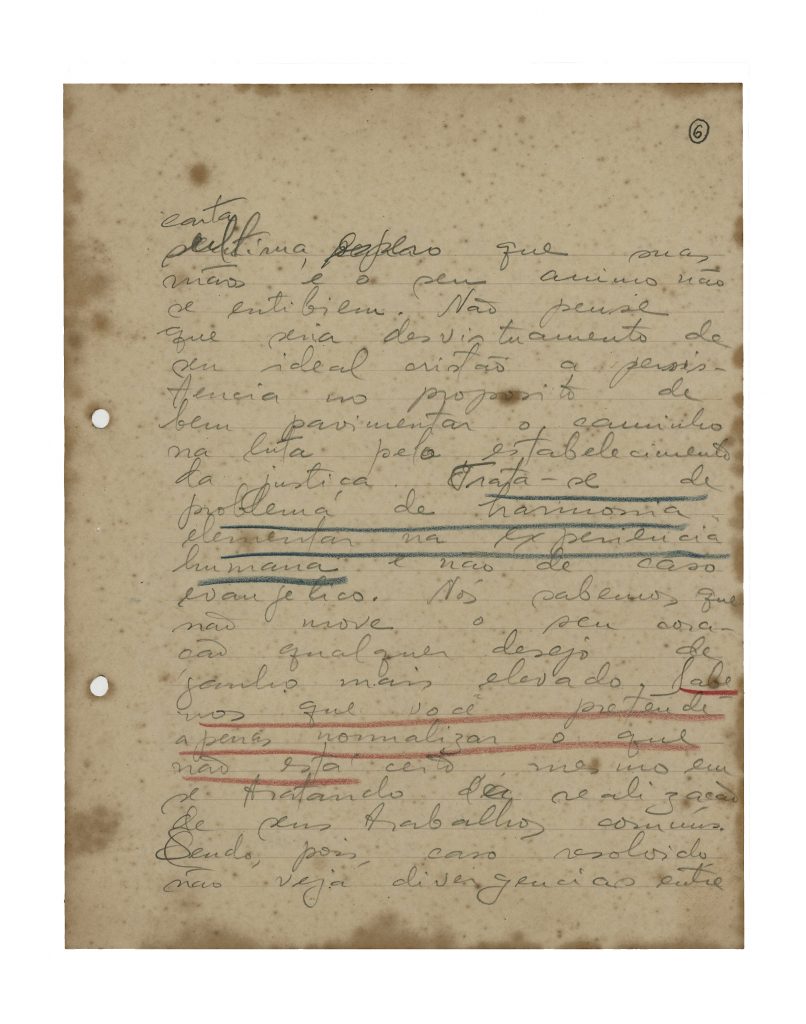 6
carta
última, espero que suas
mãos e o seu animo não
se entibiem. Não pense
que seria desvirtuamento de
seu ideal cristão a persis-
tencia no proposito de
bem pavimentar o caminho
na luta pelo estabelecimento
da justiça. Trata-se de
problema de harmonia
elementar na experiencia
humana e não de caso
evangélico. Nós sabemos que
não move o seu cora-
ção qualquer desejo de
ganho mais elevado. Sabe
mos que você pretende
apenas normalizar o que
não está certo, mesmo em
se tratando da realização
de seus trabalhos comuns.
Sendo, pois, caso resolvido,
não veja divergencias entre